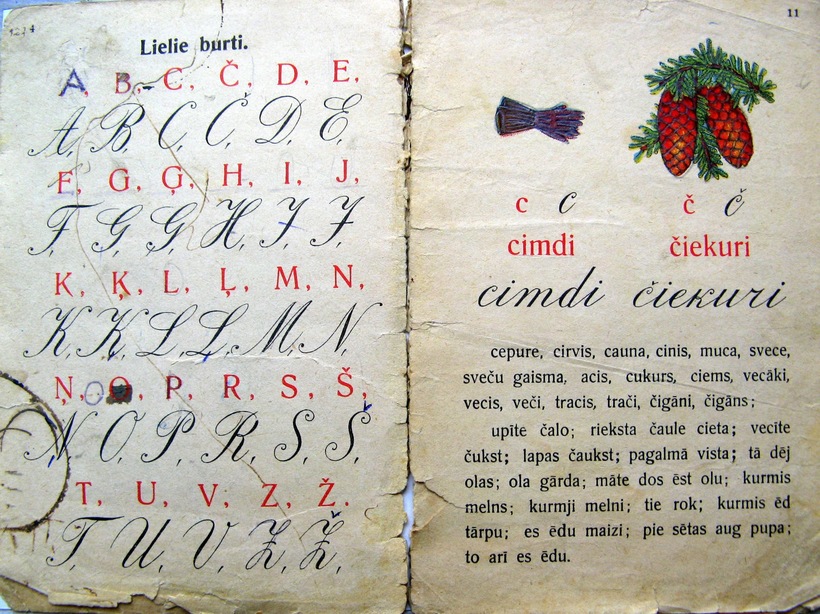 4
Lielie burti.
A, B, C, Č, D, E,
A, B, C, Č, D, E,
F, G, Ģ, H, I, J,
F, G, Ģ, H, I, J,
K, Ķ, L, Ļ, M, N,
K, Ķ, L, Ļ, M, N,
Ņ, O, P, R, S, Š,
Ņ, O, P, R, S, Š,
T, U, V, Z, Ž.
T, U, V, Z, Ž.
11
c c č č
cimdi čiekuri
cimdi čiekuri
cepure, cirvis, cauna, cinis, muca, svece,
sveču gaisma, acis, cukurs, ciems, vecāki,
vecis, veči, tracis, trači, čigāni, čigāns;
upīte čalo; rieksta čaule cieta; vecīte
čukst; lapas čaukst; pagalmā vista; tā dēj
olas; ola gārda; māte dos ēst olu; kurmis
melns; kurmji melni; tie rok; kurmis ēd
tārpu; es ēdu maizi; pie sētas aug pupa;
to arī es ēdu.